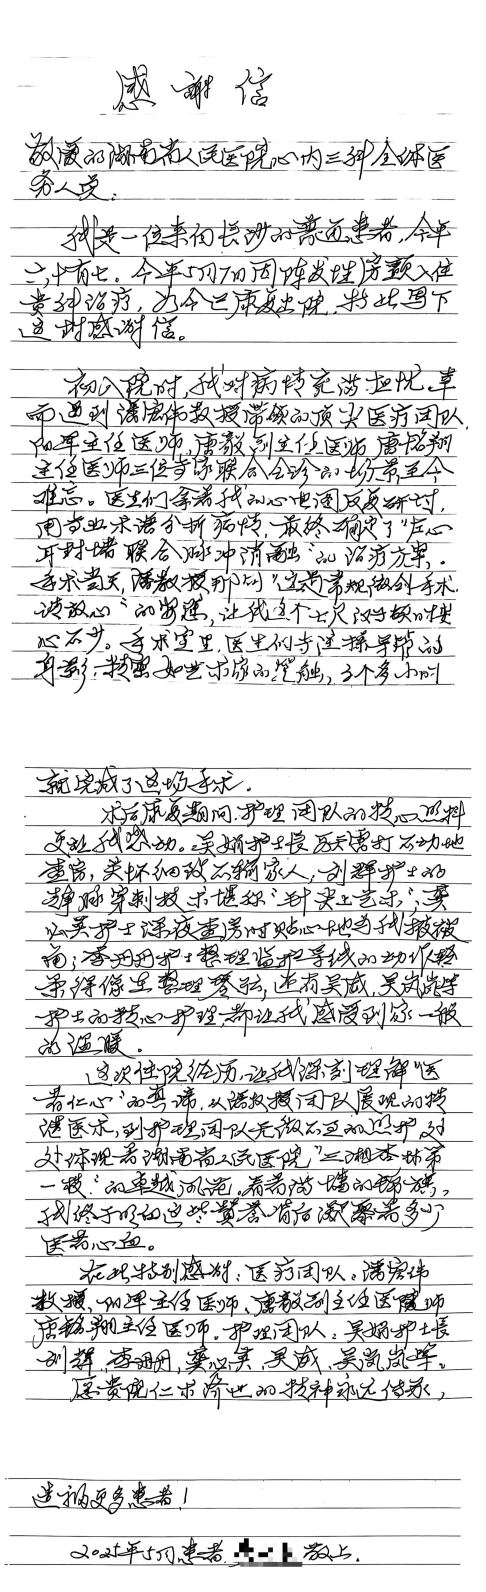 感谢信
敬爱的湖南省人民医院心内三科全体医
务人员:
我是一位来自长沙的普通患者,今年
六十有七。今年5月7日因阵发性房颤入住
贵科治疗,如今已康复出院,特此写下
这封感谢信。
初入院时,我对病情充满担忧,幸
而遇到潘宏伟教授带领的顶尖医疗团队,
阳军主任医师,唐毅副主任医师,唐铭翔
主任医师三位专家联合会诊的场景至今
难忘。医生们拿着我的心电图反复研讨,
用专业术语分析病情,最终确定了“左心
耳封堵联合脉冲消融”的治疗方案.
手术当天,潘教授那句“这是常规微创手术,
请放心”的安慰,让我这个七尺汉子顿时
心不少。手术室里,医生们专注操导管的
身影,精密如艺术家的笔触,3个多小时
就完成了这场手术.
术后康复期间,护理团队的精心照料
更让我感动。吴娟护士长每天雷打不动地
查房,关怀细致不输家人;刘辉护士的
静脉穿刺技术堪称“针尖上艺术”;龚
心美护士深夜查房时贴心地为我掖被
角;李珊珊护士整理监护导线的动作轻
柔得像在整理琴弦,还有吴威,吴岚岚等
护士的精心护理,都让我感受到家一般
的温暖。
这次住院经历,让我深刻理解“医
者仁心”的真谛,从潘教授团队展现的精
湛医术,到护理团队无微不至的照护,处
处体现着湖南省人民医院“三湘杏林第
一枝”的卓越风范,看着满墙的锦旗,
我终于明白这些赞誉背后凝聚着多少
医者心血。
在此特别感谢:医疗团队:潘宏伟
教授,阳军主任医师,唐毅副主任医师
唐铭翔主任医师.护理团队:吴娟护士长
刘辉,李珊珊,龚心美,吴威,吴岚岚等。
愿贵院仁术济世的精神永远传承,
造福更多患者!
2025年5月患者 敬上.